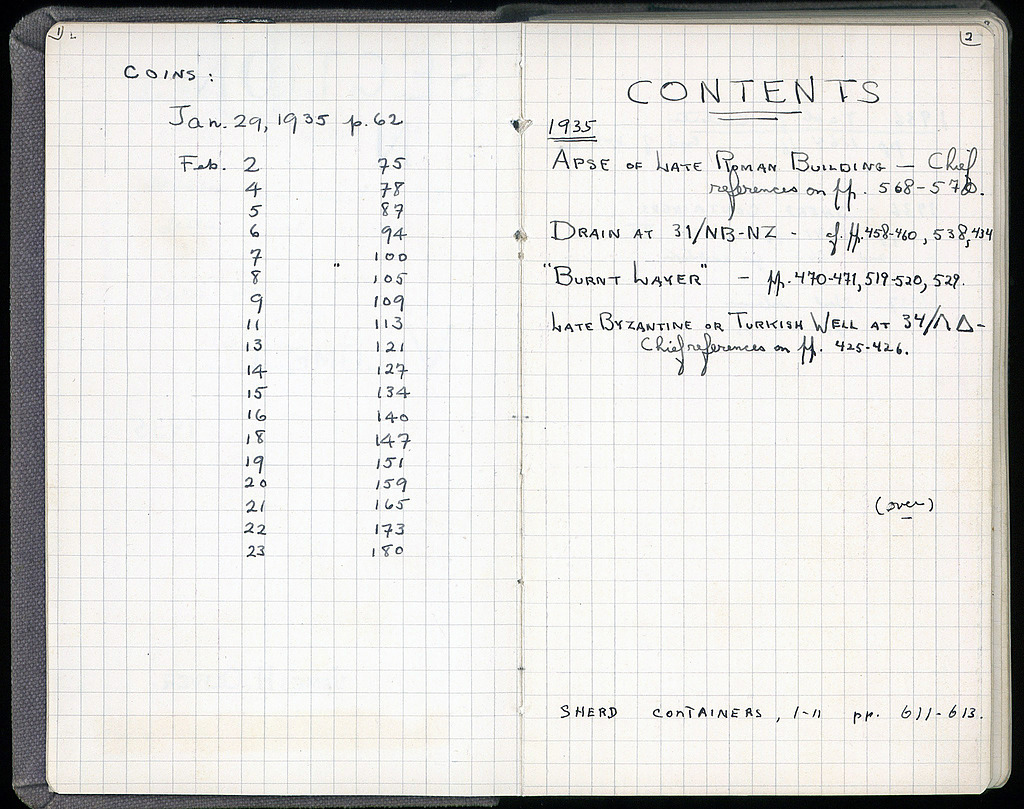 1
COINS:
Jan. 29, 1935 p. 62
Feb. 2 75
4 78
5 87
6 94
7 " 100
8 105
9 109
11 113
13 121
14 127
15 134
16 140
18 147
19 151
20 159
21 165
22 173
23 180
2
CONTENTS
1935
APSE OF LATE ROMAN BUILDING — Chief
references on pp. 568-570.
DRAIN AT 31/NB-NZ - cf. pp. 458-460, 538, 434
"BURNT LAYER" - pp. 470-471, 519-520, 529.
LATE BYZANTINE OR TURKISH WELL AT 34/Λ Δ -
Chief references on pp. 425-426.
(over)
SHERD CONTAINERS, 1-11 pp. 611-613.